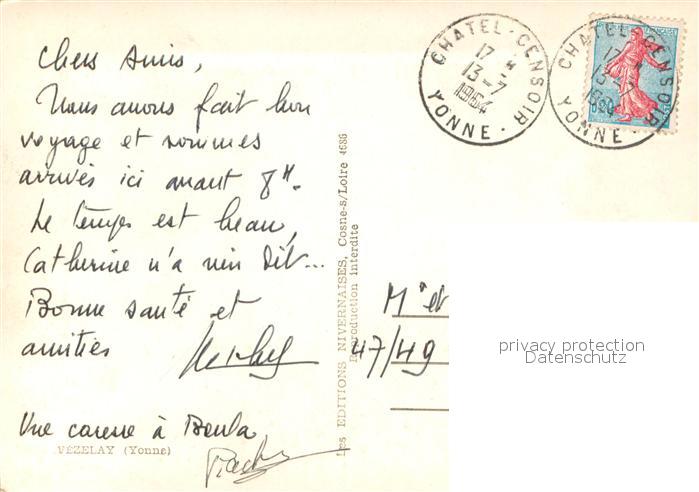 Chers Amis,
Nous avons fait bon
voyage et sommes
arrivés ici avant 8H.
Le temps est beau,
Catherine n'a rien dit...
Bonne santé et
amitiés
Une caresse à Beula
VÉZELAY (Yonne)
Les EDITIONS NIVERNAISES, Cosne-s/Loire 4686
Reproduction interdite
CHATEL-CENSOIR
17 H
13-7
1964
YONNE
CHATEL-CENSOIR
17 H
13-7
YONNE
M et
47/49
privacy protection
Datenschutz